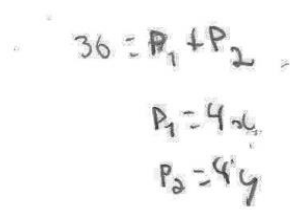 36 = P₁ + P₂
P₁ = 4x
P₂ = 4y